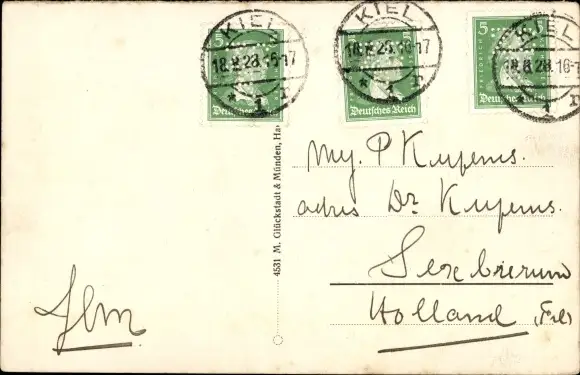 KIEL
18.8.28.16-17
* 1 r
5
Deutsches Reich
KIEL
18.8.28.16-17
* 1 r
5
Deutsches Reich
KIEL
18.8.28.16-17
* 1 r
5
FRIEDRICH
Deutsches Reich
4531 M. Glückstadt & Münden, Ha
My. P Kuperus.
adres Dr. Kuperus.
Sexbierum
Holland